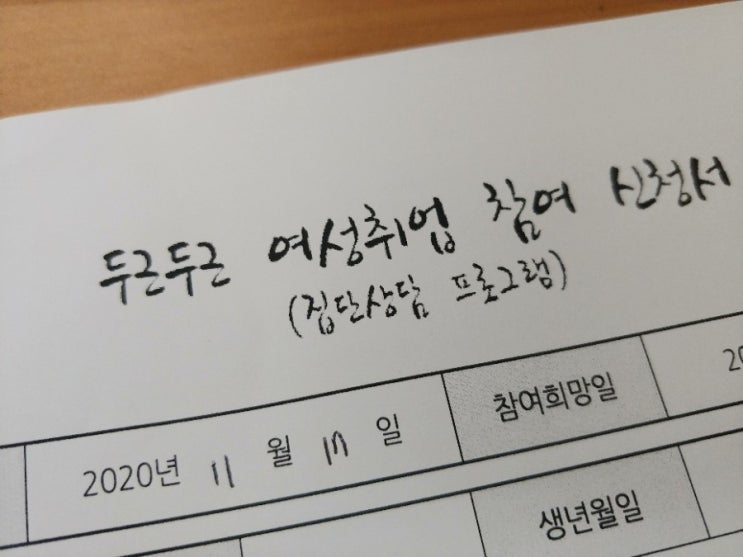 두근두근 여성취업 참여 신청서
(집단상담 프로그램)
2020년 11월 17일 참여희망일 20
생년월일